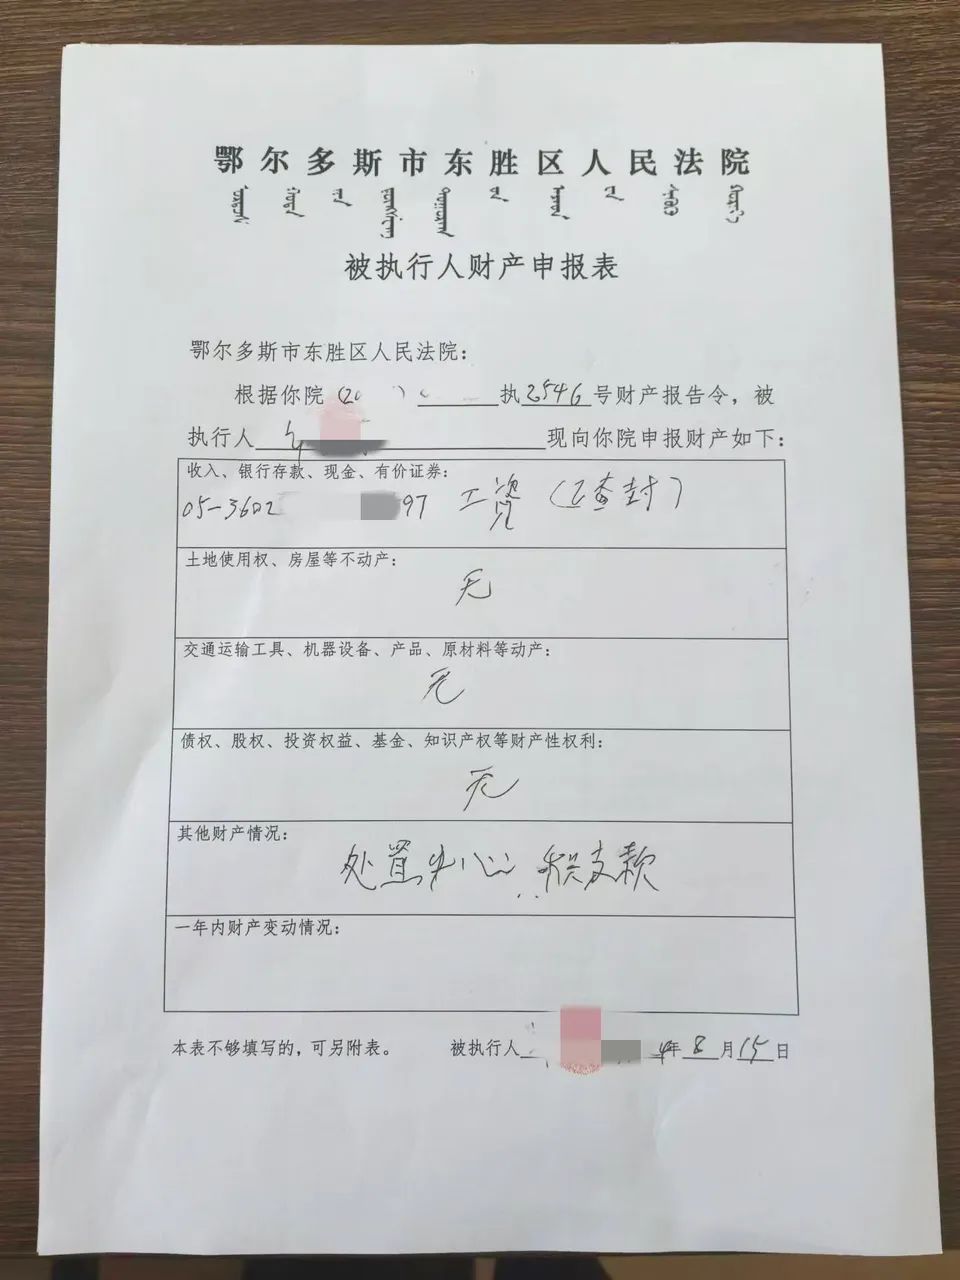 鄂尔多斯市东胜区人民法院
被执行人财产申报表
鄂尔多斯市东胜区人民法院：
根据你院（20 ） 执2546号财产报告令，被
执行人 现向你院申报财产如下：
收入、银行存款、现金、有价证券：
05-3602 97 工资（已查封）
土地使用权、房屋等不动产：
无
交通运输工具、机器设备、产品、原材料等动产：
无
债权、股权、投资权益、基金、知识产权等财产性权利：
无
其他财产情况：
处置 款
一年内财产变动情况：
本表不够填写的，可另附表。 被执行人 4年8月15日